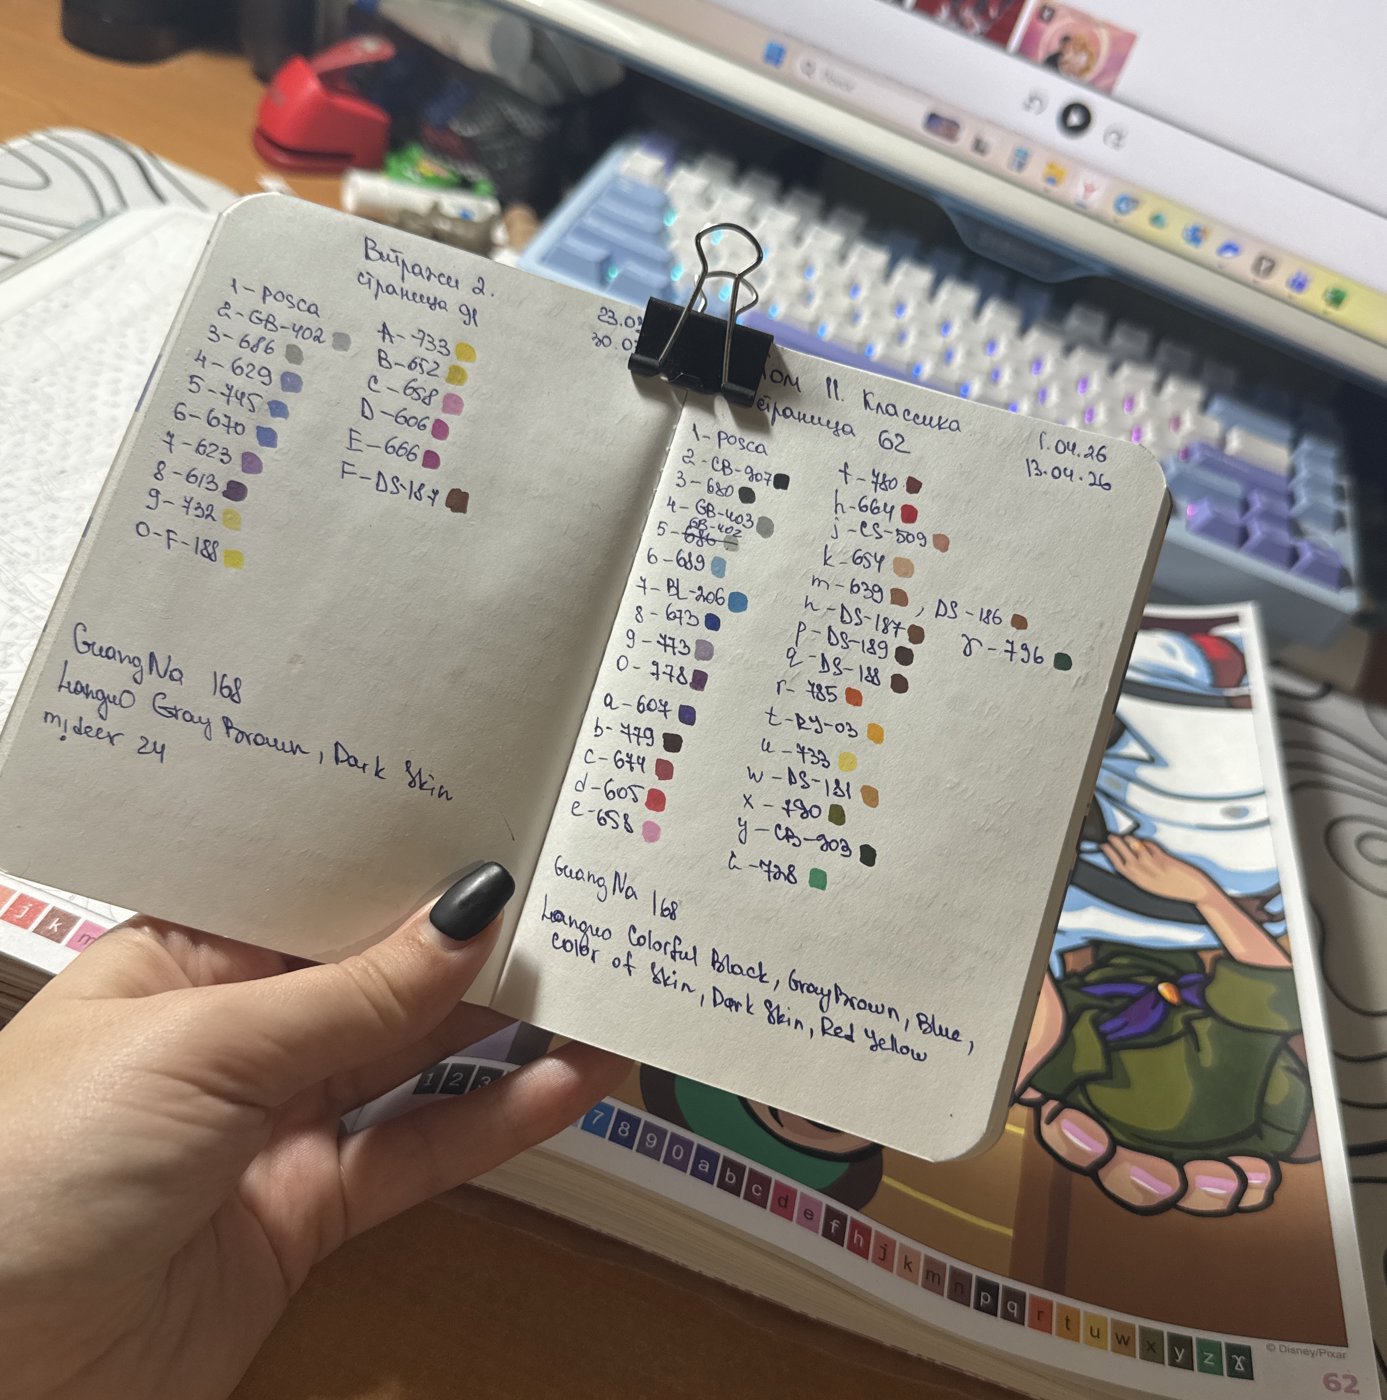 Витражи 2.
страница 91
23.0
30.0
1 - posca
2 - GB-402
3 - 686
4 - 629
5 - 745
6 - 670
7 - 623
8 - 613
9 - 732
0 - F-188
A - 733
B - 652
C - 658
D - 606
E - 666
F - DS-187
GuangNa 168
Languo Gray Brown, Dark Skin
mideer 24
том II. Классика
страница 62
1.04.26
13.04.26
1 - posca
2 - CB-907
3 - 680
4 - GB-403
GB-402
5 - 686
6 - 689
7 - BL-206
8 - 673
9 - 773
0 - 778
a - 607
b - 779
c - 674
d - 605
e - 658
f - 780
h - 664
j - CS-509
k - 654
m - 639, DS-186
n - DS-187
p - DS-189
q - DS-188
r - 785
t - RY-03
u - 733
w - DS-181
x - 790
y - CB-903
z - 728
ɤ - 796
GuangNa 168
Languo Colorful Black, GrayBrown, Blue,
Color of Skin, Dark Skin, Red Yellow
j k m
1 2 3
7 8 9 0 a b c d e f h j k m n p q r t u w x y z ɤ
© Disney/Pixar
62